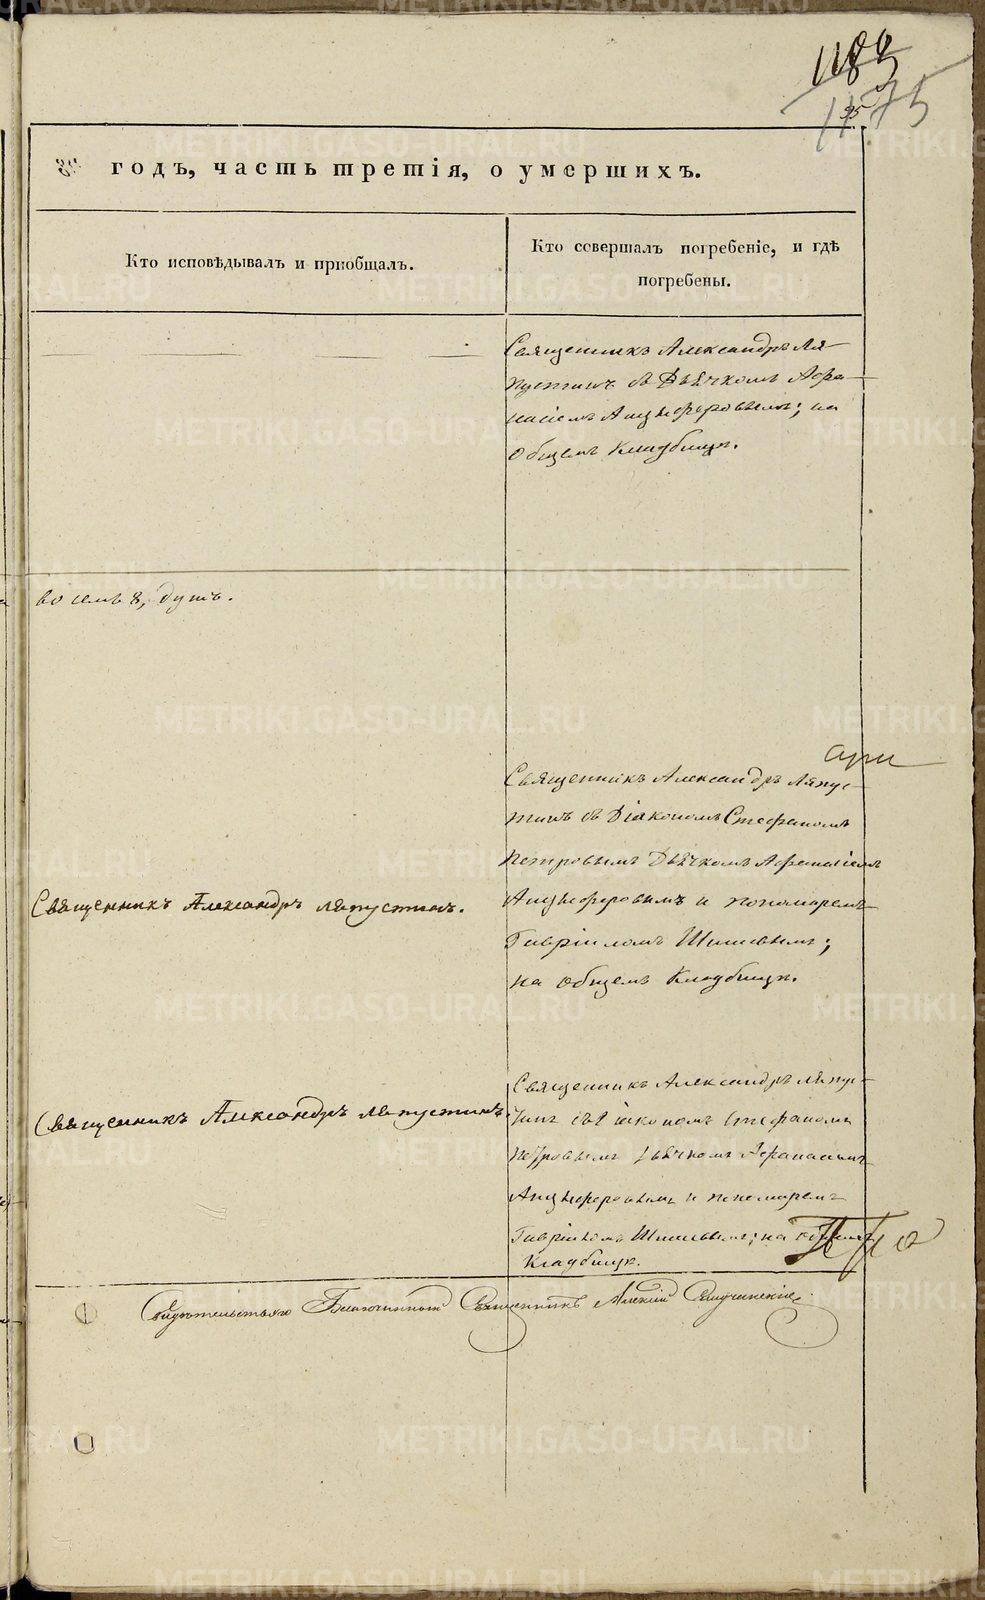 1189
1175
35
годъ, часть третія, о умершихъ.
Кто исповѣдывалъ и пріобщалъ.
Кто совершалъ погребеніе, и гдѣ
погребены.
Священникъ Александръ Ля-
пустинъ съ Дьячкомъ Афа-
насіемъ Анциферовымъ; на
общемъ Кладбищѣ.
восемь 8, душъ.
Священникъ Александръ Ляпус-
тинъ съ Діякономъ Стефаномъ
Петровымъ Дьячкомъ Афанасіемъ
Священникъ Александръ Ляпустинъ.
Анциферовымъ и пономаремъ
Гавріиломъ Шишевымъ;
на общемъ Кладбищѣ.
Священникъ Александръ Ляпус-
Священникъ Александръ Ляпустинъ.
тинъ съ Діякономъ Стефаномъ
Петровымъ Дьячкомъ Афанасіемъ
Анциферовымъ и пономаремъ
Гавріиломъ Шишевымъ; на общемъ
Кладбищѣ.
Свидѣтельствовалъ Благочинный Священникъ Алексій
METRIKI.GASO-URAL.RU